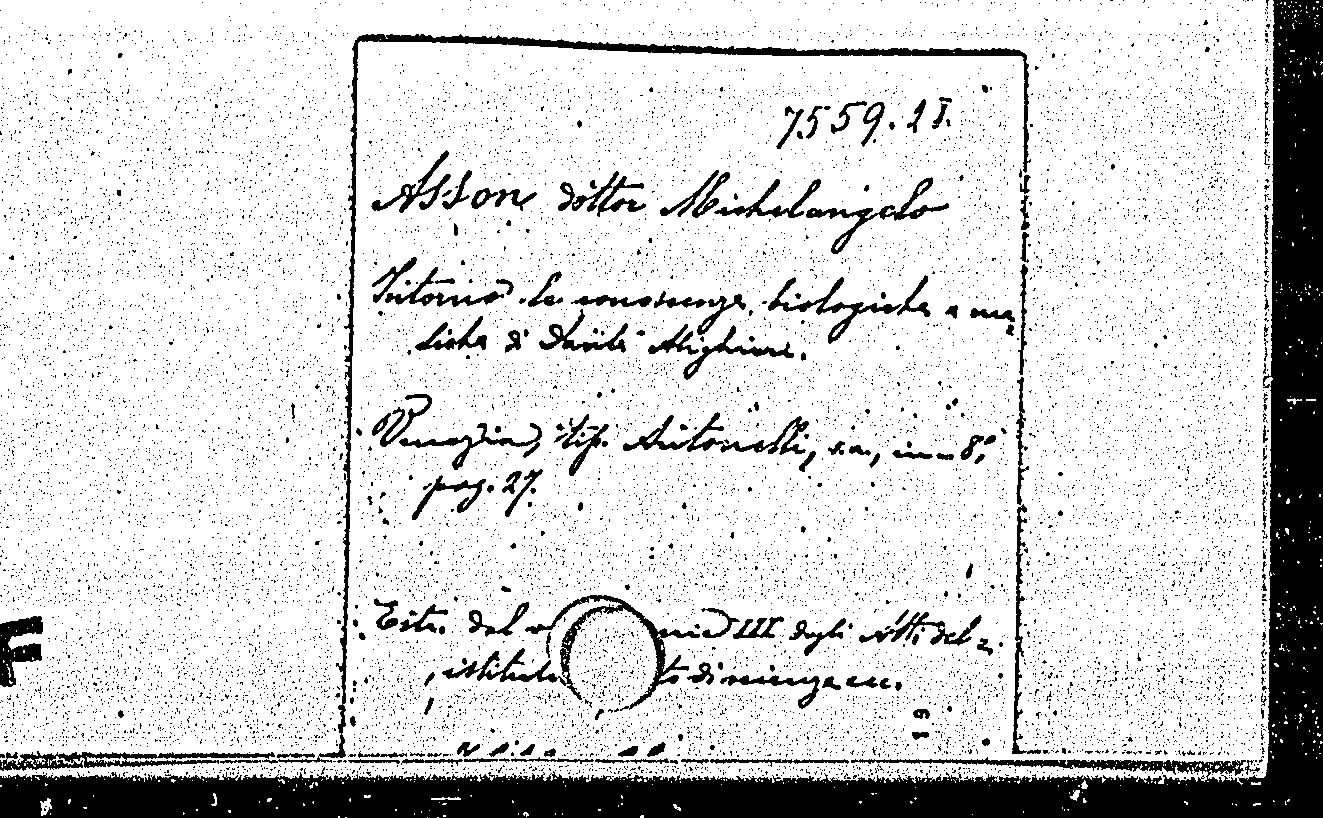 7559. 2 I.
Asson dottor Michelangelo
Intorno le conoscenze biologiche e me
diche di Dante Alighieri.
Venezia, tip. Antonelli, s. a., in-8°,
pag. 27.
Estr. dal III degli Atti del
l'istituto di scienze ecc.
19